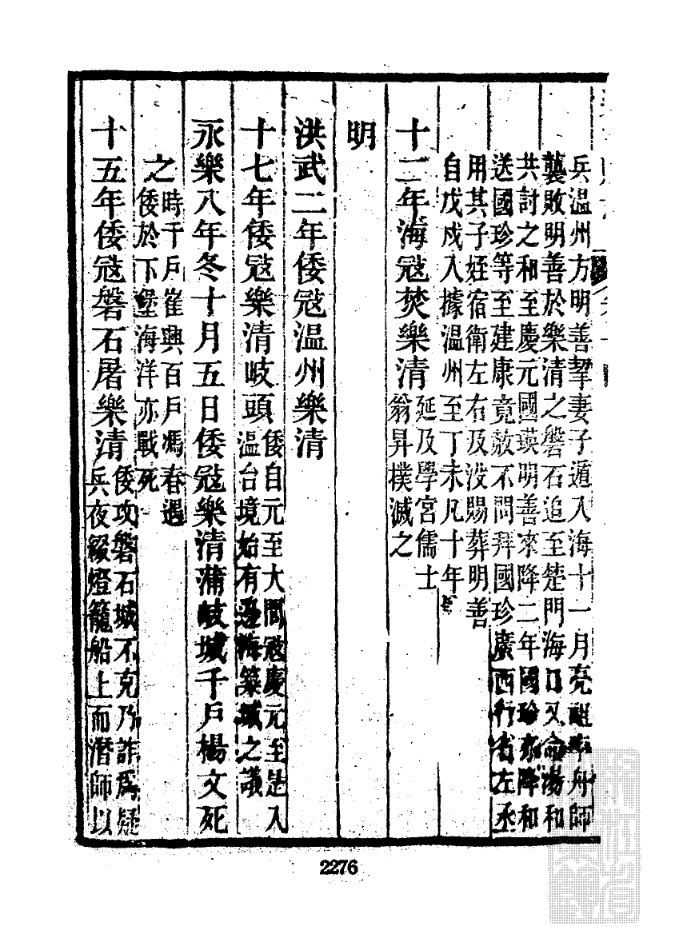 兵温州方明善挈妻子遁入海十一月亮祖率舟師
襲敗明善於樂清之磐石追至楚門海口又命湯和
共討之和至慶元國瑛明善來降二年國珍亦降和
送國珍等至建康竟赦不問拜國珍廣西行省左丞
用其子姪宿衛左右及没賜葬明善
自戊戍入據温州至丁未凡十年
十二年海冦焚樂清延及學宮儒士
翁昇撲滅之
明
洪武二年倭冦温州樂清
十七年倭冦樂清岐頭倭自元至大間冦慶元至是入
温台境始有邊海築城之議
永樂八年冬十月五日倭冦樂清蒲岐城千戶楊文死
之時千戶崔興百戶馮春遇
倭於下堡海洋亦戰死
十五年倭冦磐石屠樂清倭攻磐石城不克乃詐為疑
兵夜綴燈籠船上而潛師以
2276